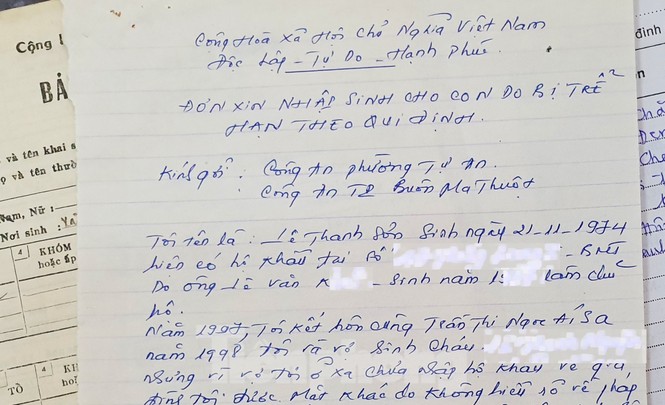 Cộng Hoà Xã Hội Chủ Nghĩa Việt Nam
Độc Lập - Tự Do - Hạnh phúc.
ĐƠN XIN NHẬP SINH CHO CON DO BỊ TRỄ
HẠN THEO QUI ĐỊNH.
Kính gởi: Công An phường Tự An.
Công An TP Buôn Ma Thuột
Tôi tên là: Lê Thanh Sơn Sinh ngày 21-11-1974
hiện có hộ khẩu tại số - BMT
Do ông Lê văn K - Sinh năm 1 làm chủ
hộ.
Năm 1997, Tôi kết hôn cùng Trần Thị Ngọc Ái Sa
năm 1998 tôi và vợ sinh cháu
nhưng vì vợ tôi ở xa chưa nhập hộ khẩu về gia
đình tôi được. Mặt khác do không hiểu rõ về pháp
Cộng
BẢ
và tên khai s
ọ và tên thườ
Nam, Nữ:
Nơi sinh:
4
KHÓM
hoặc ấp
TỔ
4
KH
hoặ
đình